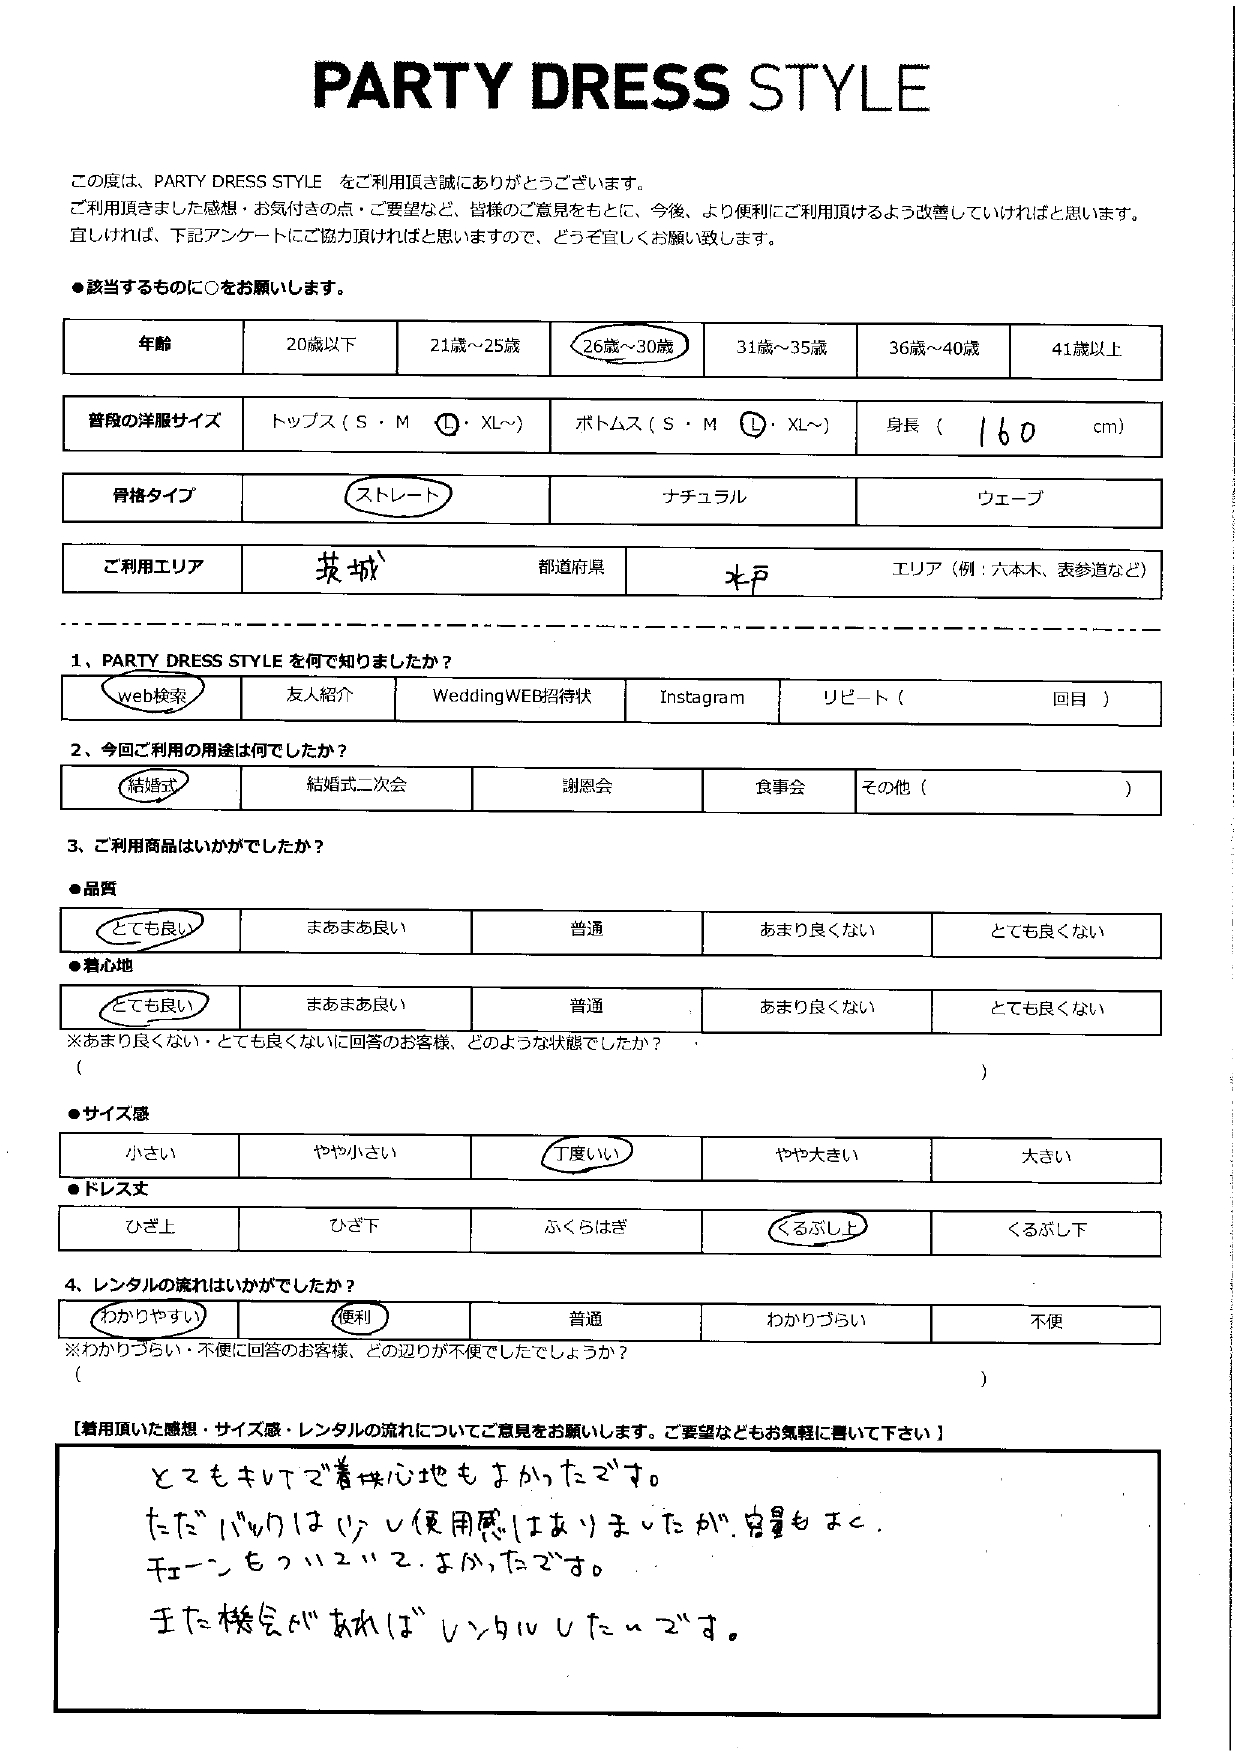 PARTY DRESS STYLE
この度は、PARTY DRESS STYLE をご利用頂き誠にありがとうございます。
ご利用頂きました感想・お気付きの点・ご要望など、皆様のご意見をもとに、今後、より便利にご利用頂けるよう改善していければと思います。
宜しければ、下記アンケートにご協力頂ければと思いますので、どうぞ宜しくお願い致します。
●該当するものに○をお願いします。
年齢 20歳以下 21歳～25歳 26歳～30歳 31歳～35歳 36歳～40歳 41歳以上
普段の洋服サイズ トップス ( S ・ M L ・ XL～) ボトムス ( S ・ M L ・ XL～) 身長 ( 160 cm)
骨格タイプ ストレート ナチュラル ウェーブ
ご利用エリア 茨城 都道府県 水戸 エリア（例：六本木、表参道など）
1、PARTY DRESS STYLE を何で知りましたか？
web検索 友人紹介 WeddingWEB招待状 Instagram リピート（ 回目 ）
2、今回ご利用の用途は何でしたか？
結婚式 結婚式二次会 謝恩会 食事会 その他（ ）
3、ご利用商品はいかがでしたか？
●品質
とても良い まあまあ良い 普通 あまり良くない とても良くない
●着心地
とても良い まあまあ良い 普通 あまり良くない とても良くない
※あまり良くない・とても良くないに回答のお客様、どのような状態でしたか？
( )
●サイズ感
小さい やや小さい 丁度いい やや大きい 大きい
●ドレス丈
ひざ上 ひざ下 ふくらはぎ くるぶし上 くるぶし下
4、レンタルの流れはいかがでしたか？
わかりやすい 便利 普通 わかりづらい 不便
※わかりづらい・不便に回答のお客様、どの辺りが不便でしたでしょうか？
( )
【着用頂いた感想・サイズ感・レンタルの流れについてご意見をお願いします。ご要望などもお気軽に書いて下さい】
とてもキレイで着心地もよかったです。
ただバックは少し使用感はありましたが、容量もよく、
チェーンもついていて、よかったです。
また機会があればレンタルしたいです。